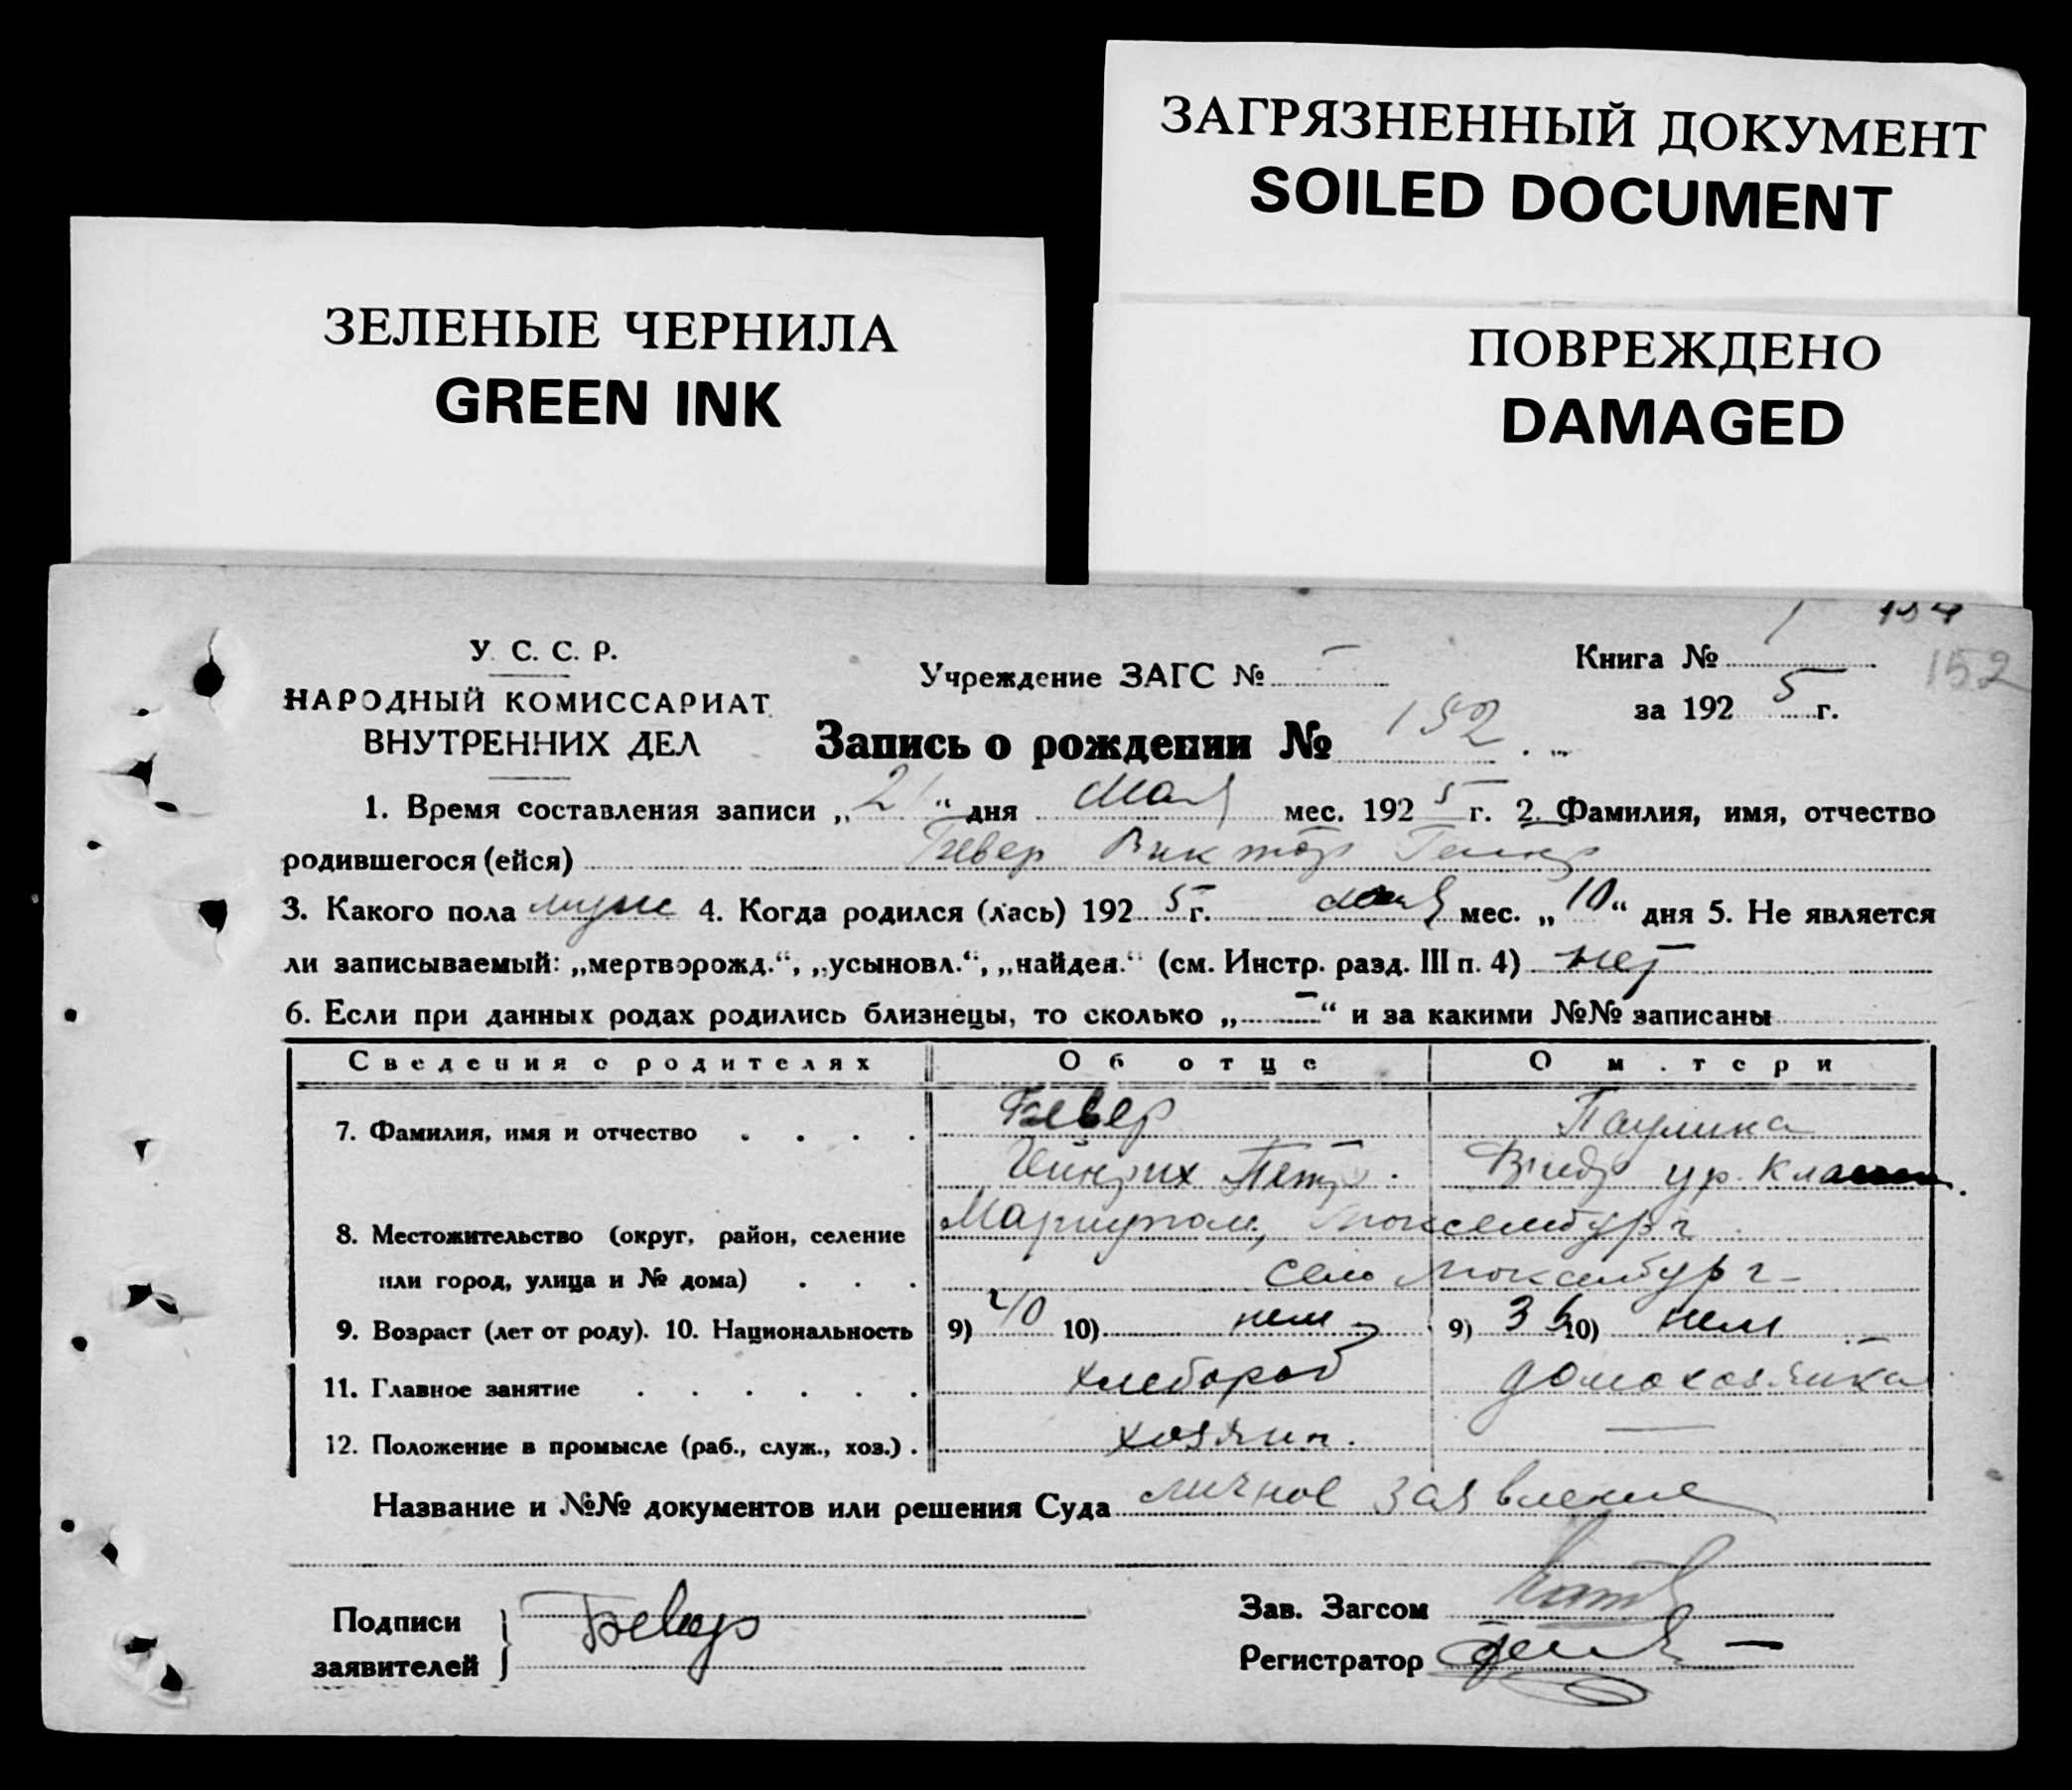 ЗАГРЯЗНЕННЫЙ ДОКУМЕНТ
SOILED DOCUMENT
ЗЕЛЕНЫЕ ЧЕРНИЛА
GREEN INK
ПОВРЕЖДЕНО
DAMAGED
152
У. С. С. Р.
НАРОДНЫЙ КОМИССАРИАТ
ВНУТРЕННИХ ДЕЛ
Учреждение ЗАГС № —
Книга № 1
за 192 5 г.
Запись о рождении № 152
1. Время составления записи „ 21 “ дня Мая мес. 192 5 г. 2. Фамилия, имя, отчество
родившегося (ейся) Бевер Виктор Генр
3. Какого пола муж 4. Когда родился (лась) 192 5 г. мая мес. „ 10 “ дня 5. Не является
ли записываемый: „мертворожд.“, „усыновл.“, „найден.“ (см. Инстр. разд. III п. 4) нет
6. Если при данных родах родились близнецы, то сколько „ — “ и за какими №№ записаны
Сведения о родителях Об отце О м.тери
7. Фамилия, имя и отчество Бевер Паулина
Гейнрих Петр. ур. Классен.
8. Местожительство (округ, район, селение Мариуполь, Люксембург
или город, улица и № дома) село Люксембург
9. Возраст (лет от роду). 10. Национальность 9) 40 10) нем 9) 36 10) нем
11. Главное занятие хлебороб домохозяйка
12. Положение в промысле (раб., служ., хоз.) хозяин. —
Название и №№ документов или решения Суда личное заявление
Подписи заявителей } Бевер
Зав. Загсом
Регистратор